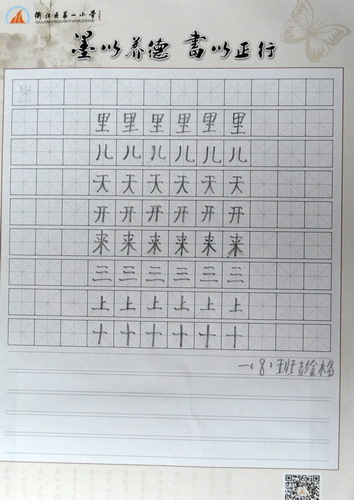 第一小学
墨以养德 书以正行
里里里里里里
儿儿儿儿儿儿
天天天天天天
开开开开开开
来来来来来来
三三三三三三
上上上上上上
十十十十十十
一(8)班